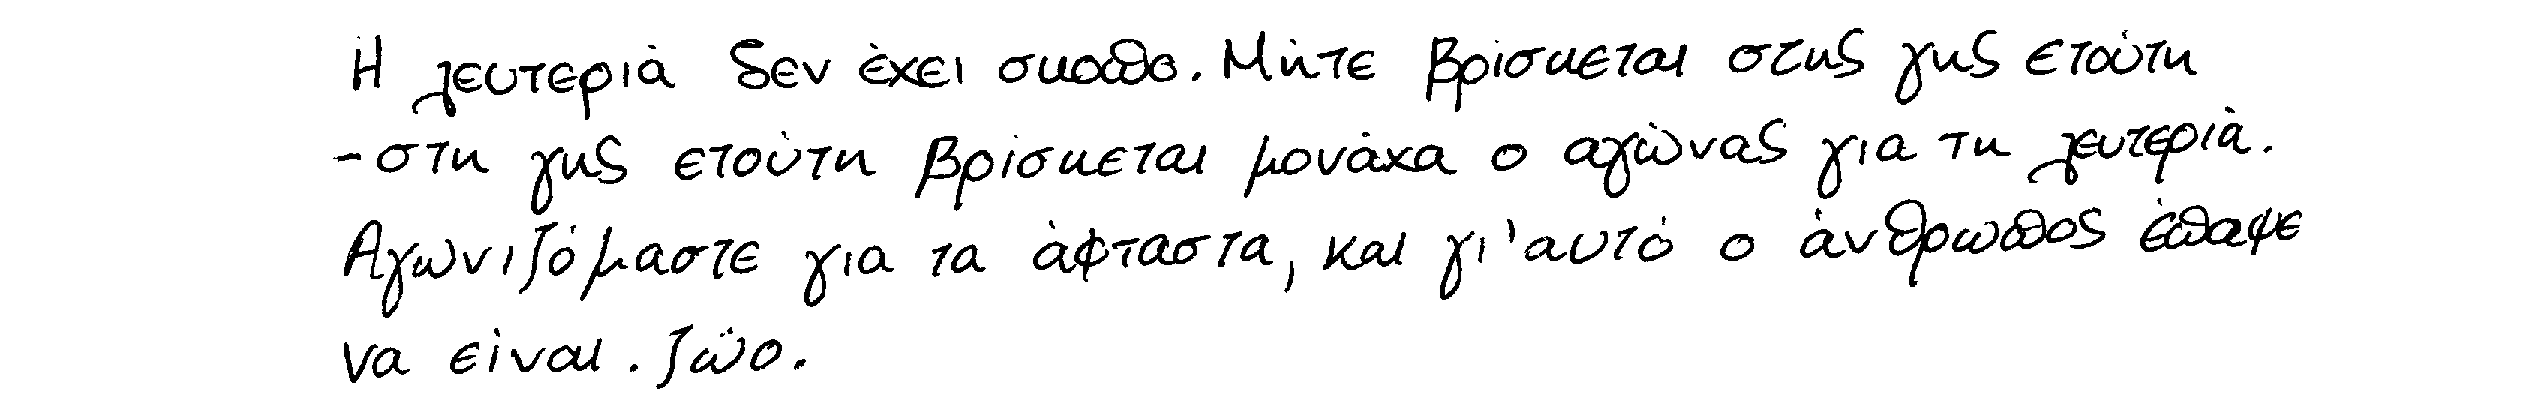 Η λευτεριά δεν έχει σκοπό. Μήτε βρίσκεται στης γης ετούτη
-στη γης ετούτη βρίσκεται μονάχα ο αγώνας για τη λευτεριά.
Αγωνιζόμαστε για τα άφταστα, και γι'αυτό ο άνθρωπος έπαψε
να είναι. ζώο.